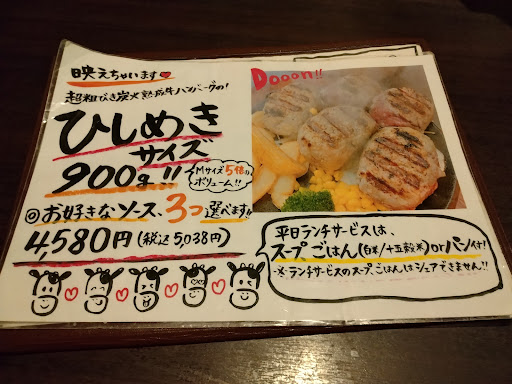 映えちゃいます
超粗びき炭火熟成牛ハンバーグの!
ひしめき
サイズ
900g!!
Mサイズ5倍の
ボリューム!!
◎お好きなソース、3つ選べます!!
4,580円(税込5,038円)
Dooon!!
平日ランチサービスは、
スープ ごはん(白米/十五穀米)orパン付!
※ランチサービスのスープ、ごはんはシェアできません!!